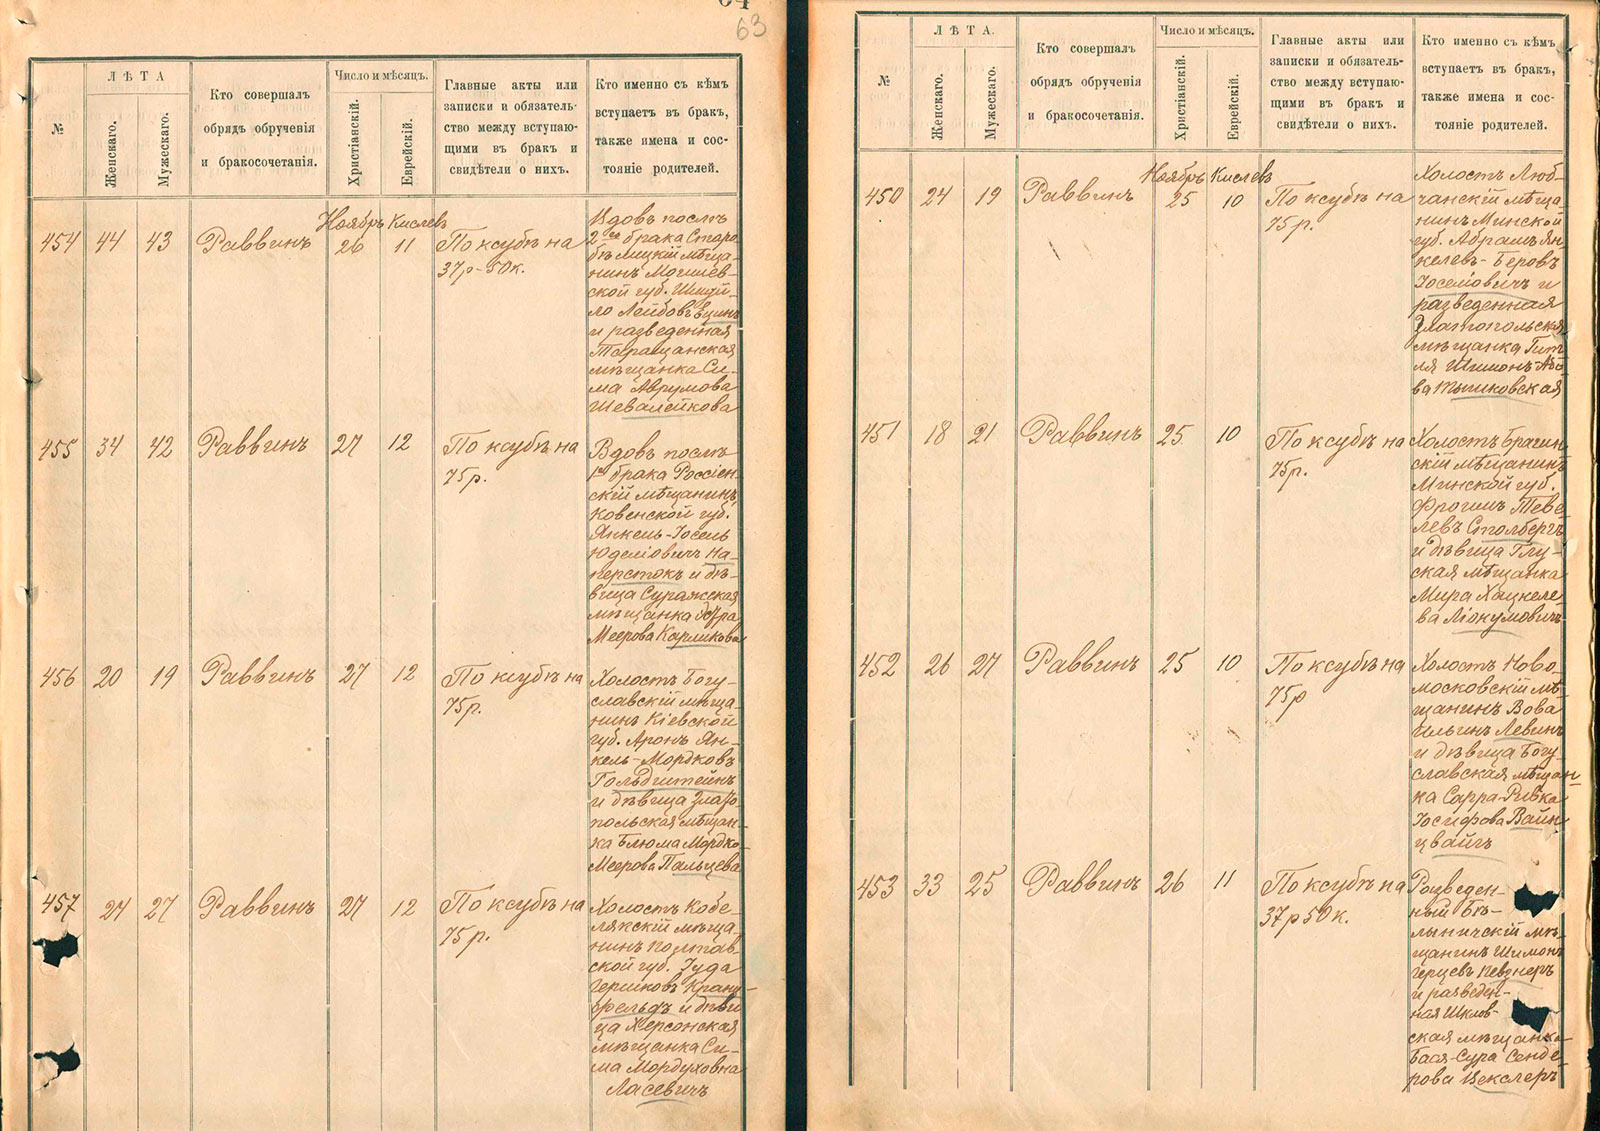 63
№
ЛѢТА
Женскаго.
Мужескаго.
Кто совершалъ
обрядъ обрученія
и бракосочетанія.
Число и мѣсяцъ.
Христіанскій.
Еврейскій.
Главные акты или
записки и обязатель-
ство между вступаю-
щими въ бракъ и
свидѣтели о нихъ.
Кто именно съ кѣмъ
вступаетъ въ бракъ,
также имена и сос-
тояніе родителей.
Ноябрь Кислевъ
454 44 43 Раввинъ 26 11 По ксубѣ на
37р-50к.
Вдовъ послѣ
2го брака Старо-
бѣлицкій мѣща-
нинъ Могилев-
ской губ. Шмуй-
ло Лейбовъ Вцинъ
и разведенная
Таращанская
мѣщанка Си-
ма Аврумова
Шевалейкова
455 34 42 Раввинъ 27 12 По ксубѣ на
75р.
Вдовъ послѣ
1го брака Россіен-
скій мѣщанинъ
Ковенской губ.
Янкель-Іосель
Юделіовичъ На-
перстокъ и дѣ-
вица Суражская
мѣщанка
Меерова Карликова
456 20 19 Раввинъ 27 12 По ксубѣ на
75р.
Холостъ Богу-
славскій мѣща-
нинъ Кіевской
губ. Аронъ Ян-
кель-Мордковъ
Гольдштейнъ
и дѣвица Злато-
польская мѣщан-
ка Блюма Мордко-
Меерова Пальцева
457 24 27 Раввинъ 27 12 По ксубѣ на
75р.
Холостъ Кобе-
лякскій мѣща-
нинъ Полтав
ской губ. Іуда
Гершковъ Кранц-
фельдъ и дѣви
ца Херсонская
мѣщанка Си-
ма Мордуховна
Ласевичъ
№
ЛѢТА.
Женскаго.
Мужескаго.
Кто совершалъ
обрядъ обрученія
и бракосочетанія.
Число и мѣсяцъ.
Христіанскій.
Еврейскій.
Главные акты или
записки и обязатель-
ство между вступаю-
щими въ бракъ и
свидѣтели о нихъ.
Кто именно съ кѣмъ
вступаетъ въ бракъ,
также имена и сос-
тояніе родителей.
Ноябрь Кислевъ
450 24 19 Раввинъ 25 10 По ксубѣ на
75р.
Холостъ Люб-
чанскій мѣща-
нинъ Минской
губ. Абрамъ Ян-
келевъ-Беровъ
Іоселіовичъ и
разведенная
Златопольская
мѣщанка Гит
ля Шимонъ-Або-
ва Тышковская
451 18 21 Раввинъ 25 10 По ксубѣ на
75р.
Холостъ Брагин
скій мѣщанинъ
Минской губ.
Фроимъ Теве-
левъ Столбергъ
и дѣвица Глу-
ская мѣщанка
Мира Хацкеле-
ва Люкумовичъ
452 26 27 Раввинъ 25 10 По ксубѣ на
75р
Холостъ Ново-
московскій мѣ-
щанинъ Вова
Ильинъ Левинъ
и дѣвица Богу-
славская мѣщан-
ка Сарра-Ривка
Іосифова Вайн-
цвайгъ
453 33 25 Раввинъ 26 11 По ксубѣ на
37р 50к.
Розведен-
ный Бѣ-
лыничскій мѣ-
щанинъ Шимонъ
Герцевъ Певзнеръ
и разведен-
ная Шклов-
ская мѣщанка
Бася-Сура Сенде-
рова Векслеръ